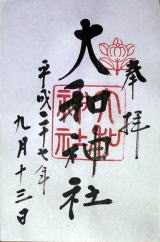 奉拝
大和神社
平成二十七年
九月十三日
大和神社